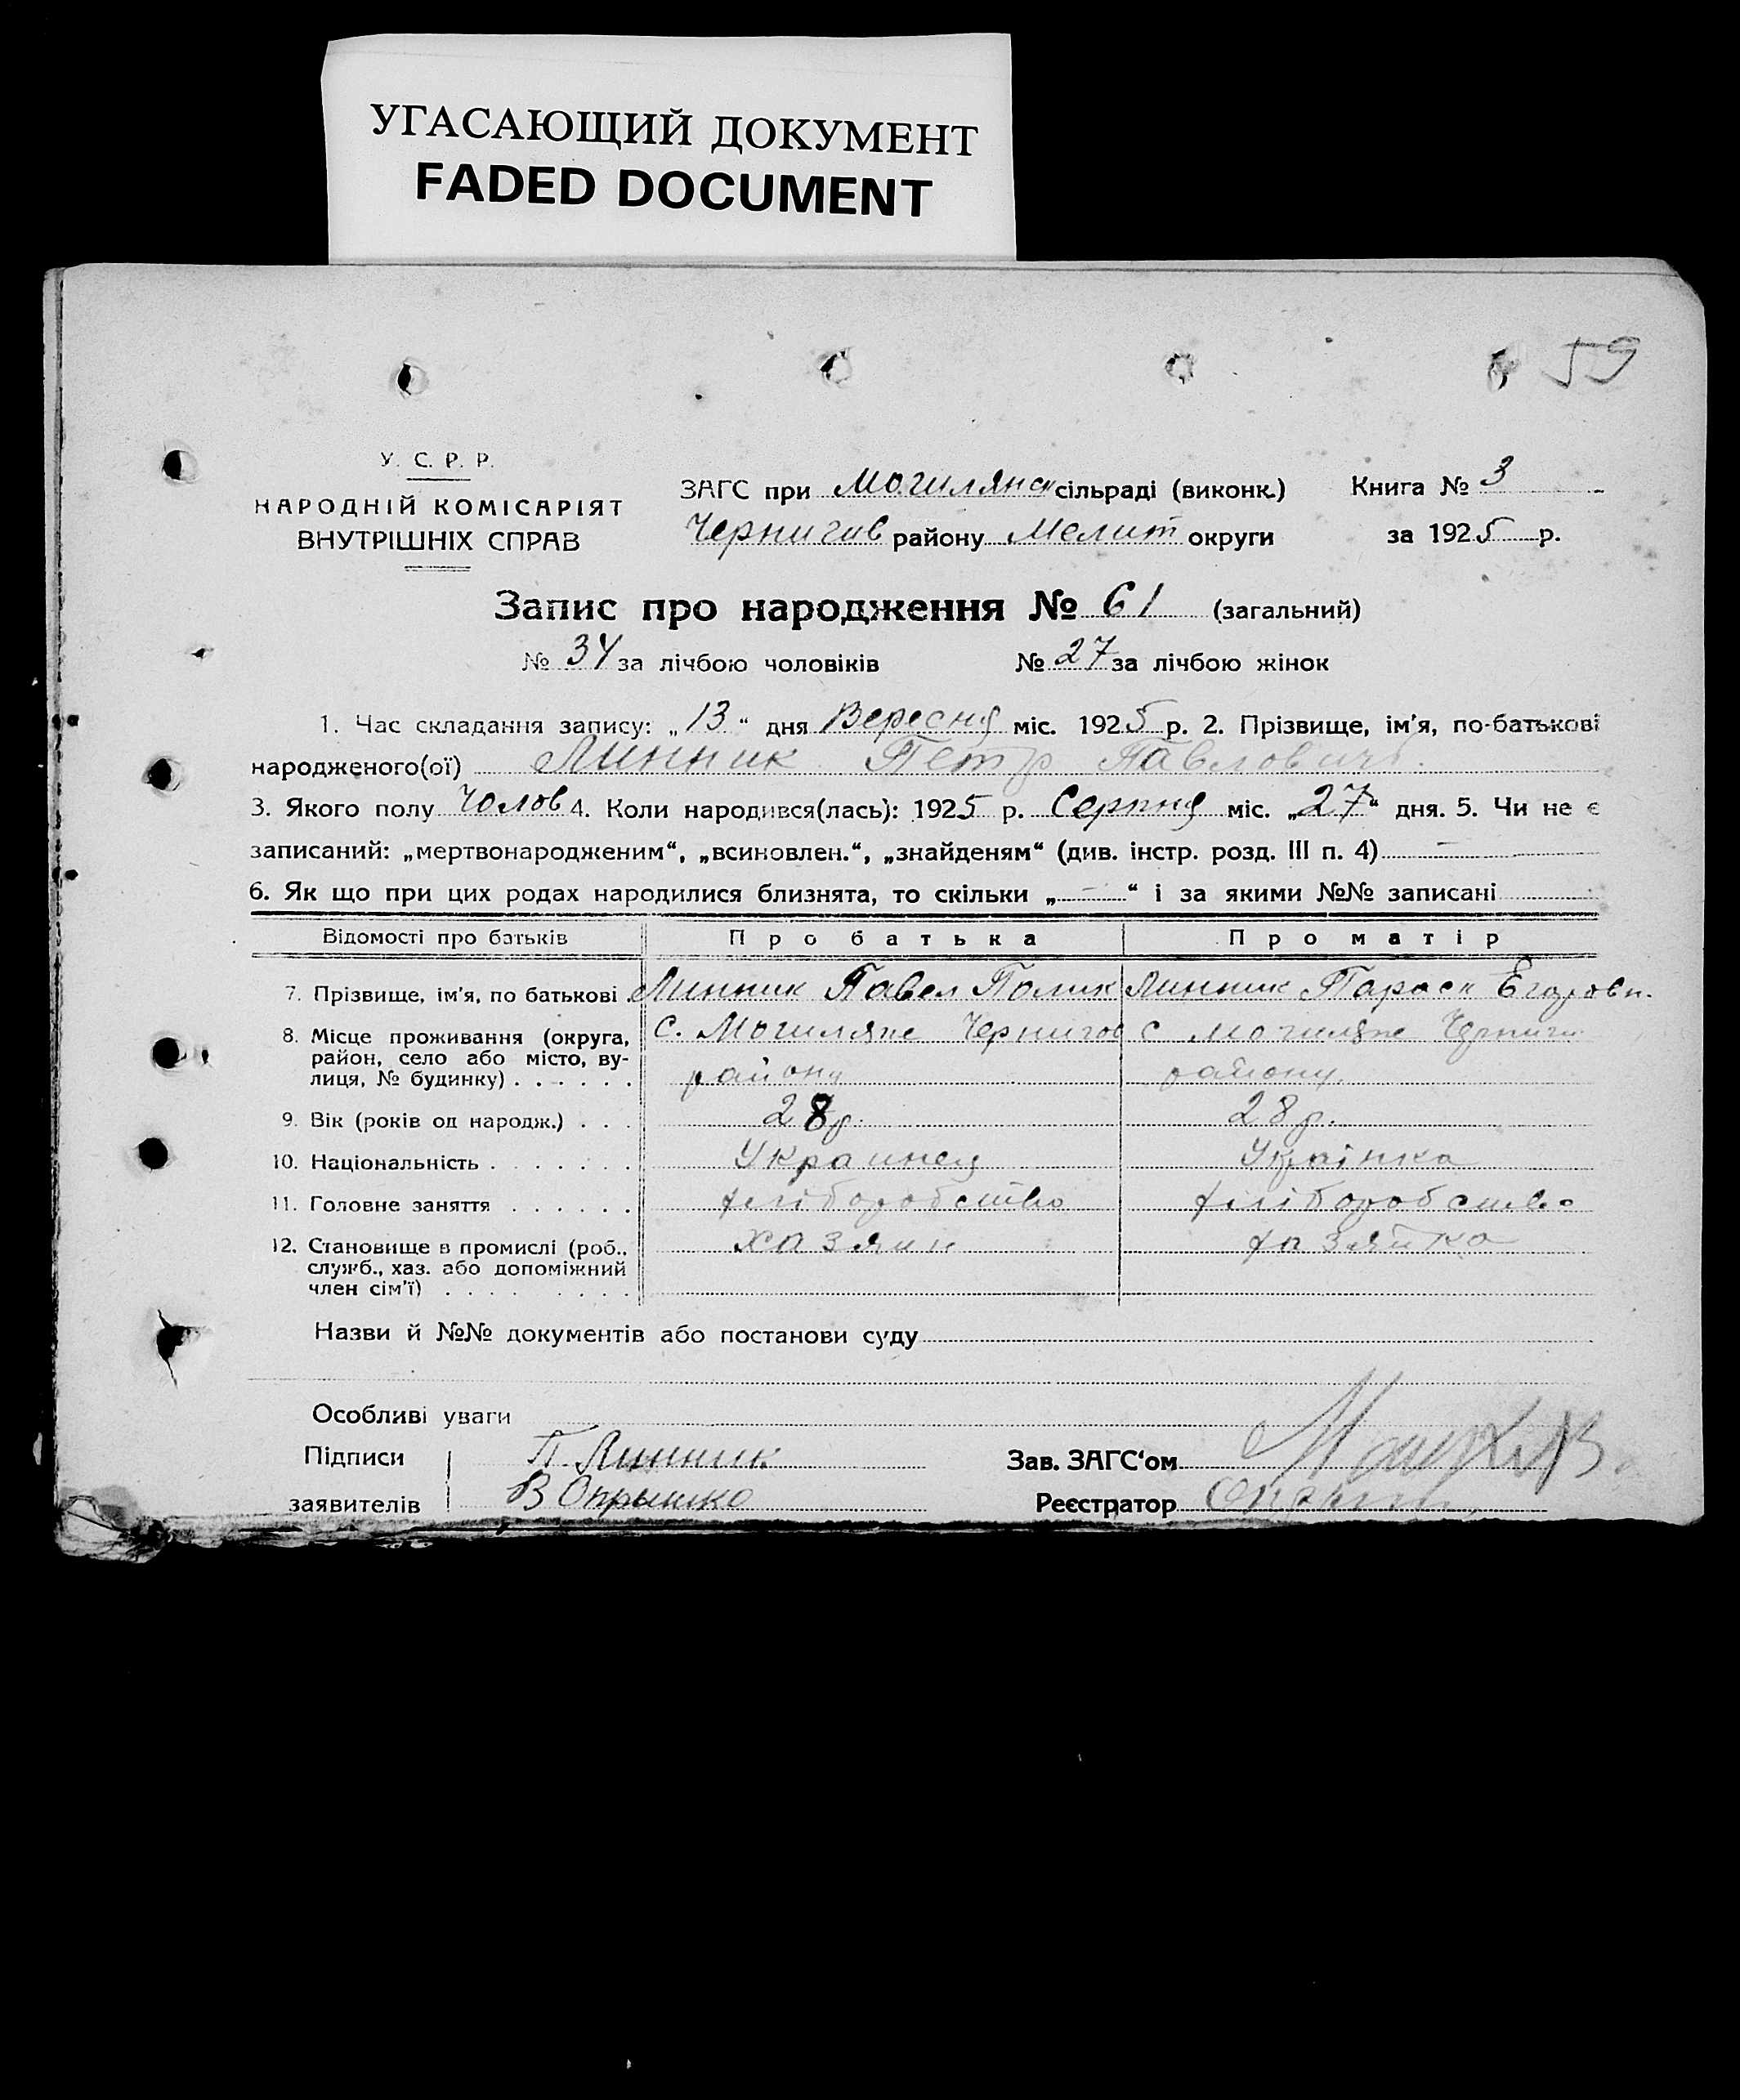 УГАСАЮЩИЙ ДОКУМЕНТ
FADED DOCUMENT
59
У. С. Р. Р.
НАРОДНІЙ КОМІСАРІЯТ
ВНУТРІШНІХ СПРАВ
ЗАГС при Могилянс сільраді (виконк.) Книга № 3
Чернигив району Мелит округи за 1925 р.
Запис про народження № 61 (загальний)
№ 34 за лічбою чоловіків № 27 за лічбою жінок
1. Час складання запису: „13“ дня Вересня міс. 1925 р. 2. Прізвище, ім'я, по-батькові
народженого(ої) Линник Петр Павлович
3. Якого полу Чолов 4. Коли народився(лась): 1925 р. Серпня міс. „27“ дня. 5. Чи не є
записаний: „мертвонародженим“, „всиновлен.“, „знайденям“ (див. інстр. розд. III п. 4) —
6. Як що при цих родах народилися близнята, то скільки „—“ і за якими №№ записані
Відомості про батьків Про батька Про матір
7. Прізвище, ім'я, по батькові . Линник Павел Полик Линник Параск Егоровн.
8. Місце проживання (округа, район, село або місто, вулиця, № будинку) . . . . . . с. Могиляне Чернигов району с Могиляне Черниги району.
9. Вік (років од народж.) . . . 28р. 28р.
10. Національність . . . . . . . Украинец Українка
11. Головне заняття . . . . . . хліборобство хліборобство
12. Становище в промислі (роб., служб., хаз. або допоміжний член сім'ї) . . . . . . . . хазяин хазяйка
Назви й №№ документів або постанови суду
Особливі уваги
Підписи П. Линник Зав. ЗАГС‘ом
заявителів В Опрышко Реєстратор